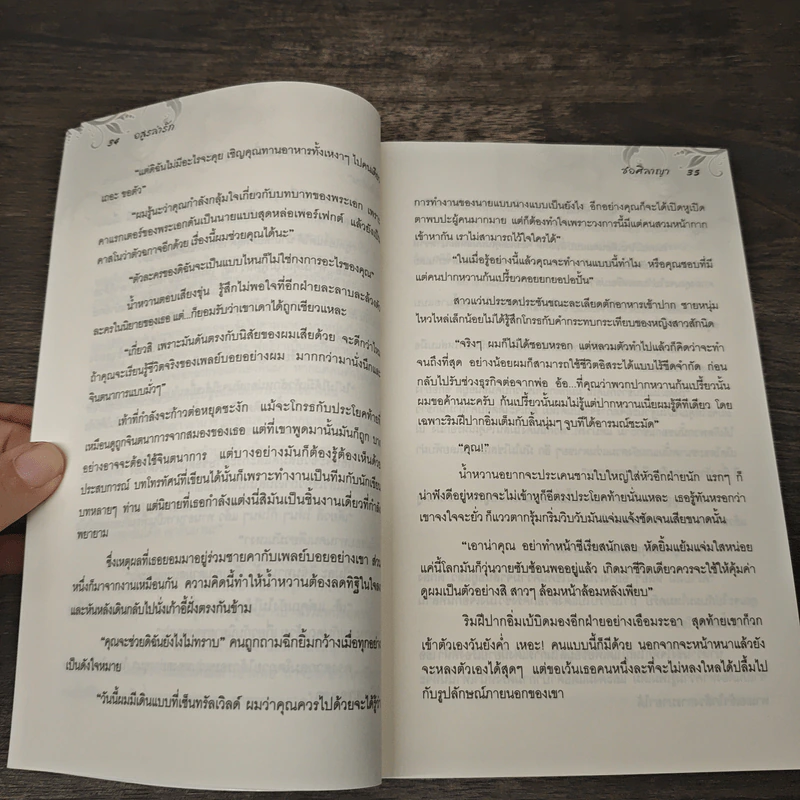 34 อสูรล่ารัก
"แต่ดิฉันไม่มีอะไรจะคุย เชิญคุณทานอาหารทั้งเหงาๆ ไปคนเดียว
เถอะ ขอตัว"
"ผมรู้นะว่าคุณกำลังกลุ้มใจเกี่ยวกับบทบาทของพระเอก เพราะ
คาแรกเตอร์ของพระเอกดันเป็นนายแบบสุดหล่อเพอร์เฟกต์ แล้วยังเป็น
คาสโนว่าตัวฉกาจอีกด้วย เรื่องนี้ผมช่วยคุณได้นะ"
"ตัวละครของดิฉันจะเป็นแบบไหนก็ไม่ใช่กงการอะไรของคุณ"
น้ำหวานตอบเสียงขุ่น รู้สึกไม่พอใจที่อีกฝ่ายละลาบละล้วงถึง
ละครในนิยายของเธอ แต่...ก็ยอมรับว่าเขาเดาได้ถูกเชียวแหละ
"เกี่ยวสิ เพราะมันดันตรงกับนิสัยของผมเสียด้วย จะดีกว่าไหม
ถ้าคุณจะเรียนรู้ชีวิตจริงของเพลย์บอยอย่างผม มากกว่ามานั่งนึกและ
จินตนาการแบบมั่วๆ"
เท้าที่กำลังจะก้าวต่อหยุดชะงัก แม้จะโกรธกับประโยคท้ายที่
เหมือนดูถูกจินตนาการจากสมองของเธอ แต่ที่เขาพูดมานั้นมันก็ถูก บาง
อย่างอาจจะต้องใช้จินตนาการ แต่บางอย่างมันก็ต้องรู้ต้องเห็นด้วย
ประสบการณ์ บทโทรทัศน์ที่เขียนได้นั้นก็เพราะทำงานเป็นทีมกับนักเขียน
บทหลายๆ ท่าน แต่นิยายที่เธอกำลังแต่งนี่สิมันเป็นชิ้นงานเดี่ยวที่กำลัง
พยายาม
ซึ่งเหตุผลที่เธอยอมมาอยู่ร่วมชายคากับเพลย์บอยอย่างเขา ส่วน
หนึ่งก็มาจากงานเหมือนกัน ความคิดนี้ทำให้น้ำหวานต้องลดทิฐิในใจลง
และหันหลังเดินกลับไปนั่งเก้าอี้ฝั่งตรงกันข้าม
"คุณจะช่วยดิฉันยังไงไม่ทราบ" คนถูกถามฉีกยิ้มกว้างเมื่อทุกอย่าง
เป็นดังใจหมาย
"วันนี้ผมมีเดินแบบที่เซ็นทรัลเวิลด์ ผมว่าคุณควรไปด้วยจะได้รู้ว่า
ช่อศิลาญา 35
การทำงานของนายแบบนางแบบเป็นยังไง อีกอย่างคุณก็จะได้เปิดหูเปิด
ตาพบปะผู้คนมากมาย แต่ก็ต้องทำใจเพราะวงการนี้มีแต่คนสวมหน้ากาก
เข้าหากัน เราไม่สามารถไว้ใจใครได้"
"ในเมื่อรู้อย่างนี้แล้วคุณจะทำงานแบบนี้ทำไม หรือคุณชอบที่มี
แต่คนปากหวานก้นเปรี้ยวคอยยกยอปอปั้น"
สาวแว่นประชดประชันขณะละเลียดตักอาหารเข้าปาก ชายหนุ่ม
ไหวไหล่เล็กน้อยไม่ได้รู้สึกโกรธกับคำกระทบกระเทียบของหญิงสาวสักนิด
"จริงๆ ผมก็ไม่ได้ชอบหรอก แต่หลวมตัวทำไปแล้วก็คิดว่าจะทำ
จนถึงที่สุด อย่างน้อยผมก็สามารถใช้ชีวิตอิสระได้แบบไร้ขีดจำกัด ก่อน
กลับไปรับช่วงธุรกิจต่อจากพ่อ อ้อ...ที่คุณว่าพวกปากหวานก้นเปรี้ยวนั้น
ผมขอค้านนะครับ ก้นเปรี้ยวนั้นผมไม่รู้แต่ปากหวานเนี่ยผมรู้ดีทีเดียว โดย
เฉพาะริมฝีปากอิ่มเต็มกับลิ้นนุ่มๆ จูบทีได้อารมณ์ชะมัด"
"คุณ!"
น้ำหวานอยากจะประเคนชามใบใหญ่ใส่หัวอีกฝ่ายนัก แรกๆ ก็
น่าฟังดีอยู่หรอกจะไม่เข้าหูก็อีตรงประโยคท้ายนั่นแหละ เธอรู้ทันหรอกว่า
เขาจงใจจะยั่ว ก็แววตากรุ้มกริ่มวิบวับมันแจ่มแจ้งชัดเจนเสียขนาดนั้น
"เอาน่าคุณ อย่าทำหน้าซีเรียสนักเลย หัดยิ้มแย้มแจ่มใสหน่อย
แค่นี้โลกมันก็วุ่นวายซับซ้อนพออยู่แล้ว เกิดมาชีวิตเดียวควรจะใช้ให้คุ้มค่า
ดูผมเป็นตัวอย่างสิ สาวๆ ล้อมหน้าล้อมหลังเพียบ"
ริมฝีปากอิ่มเบ้บิดมองอีกฝ่ายอย่างเอือมระอา สุดท้ายเขาก็วก
เข้าตัวเองวันยังค่ำ เหอะ! คนแบบนี้ก็มีด้วย นอกจากจะหน้าหนาแล้วยัง
จะหลงตัวเองได้สุดๆ แต่ขอเว้นเธอคนหนึ่งละที่จะไม่หลงใหลได้ปลื้มไป
กับรูปลักษณ์ภายนอกของเขา